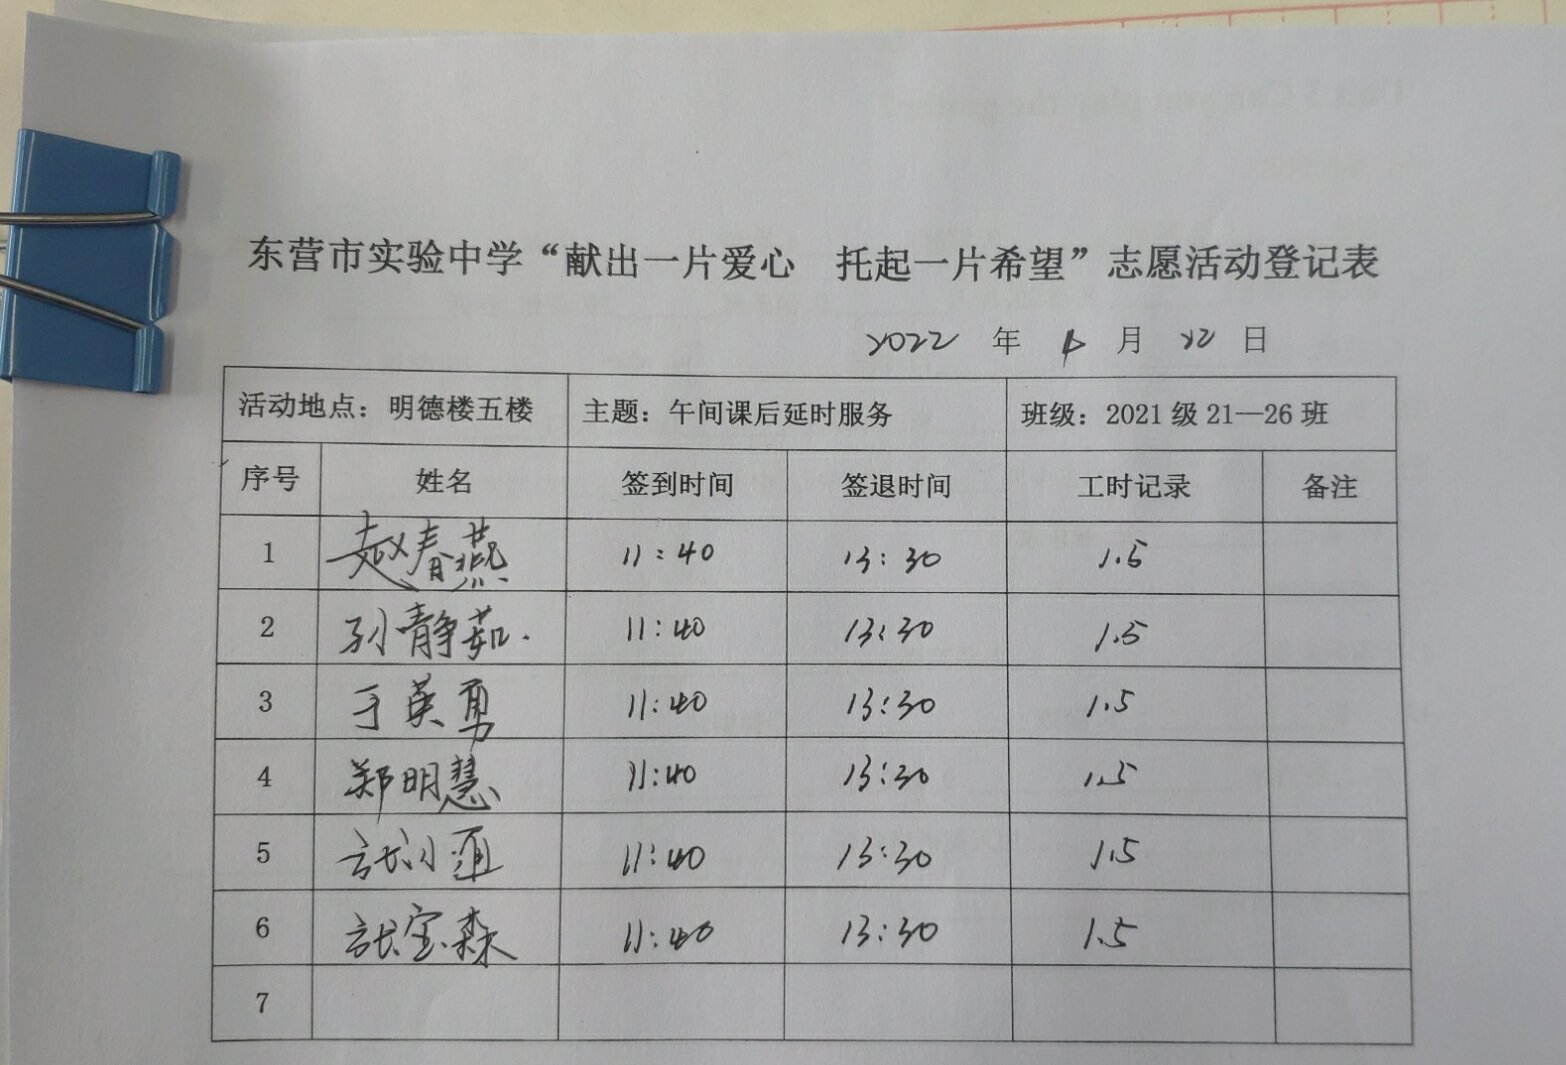 东营市实验中学“献出一片爱心 托起一片希望”志愿活动登记表
2022 年 月 22 日
活动地点：明德楼五楼 主题：午间课后延时服务 班级：2021 级 21—26 班
序号 姓名 签到时间 签退时间 工时记录 备注
1 赵春燕 11:40 13:30 1.5
2 孙静茹 11:40 13:30 1.5
3 于英勇 11:40 13:30 1.5
4 郑明慧 11:40 13:30 1.5
5 张小 11:40 13:30 1.5
6 张宝森 11:40 13:30 1.5
7